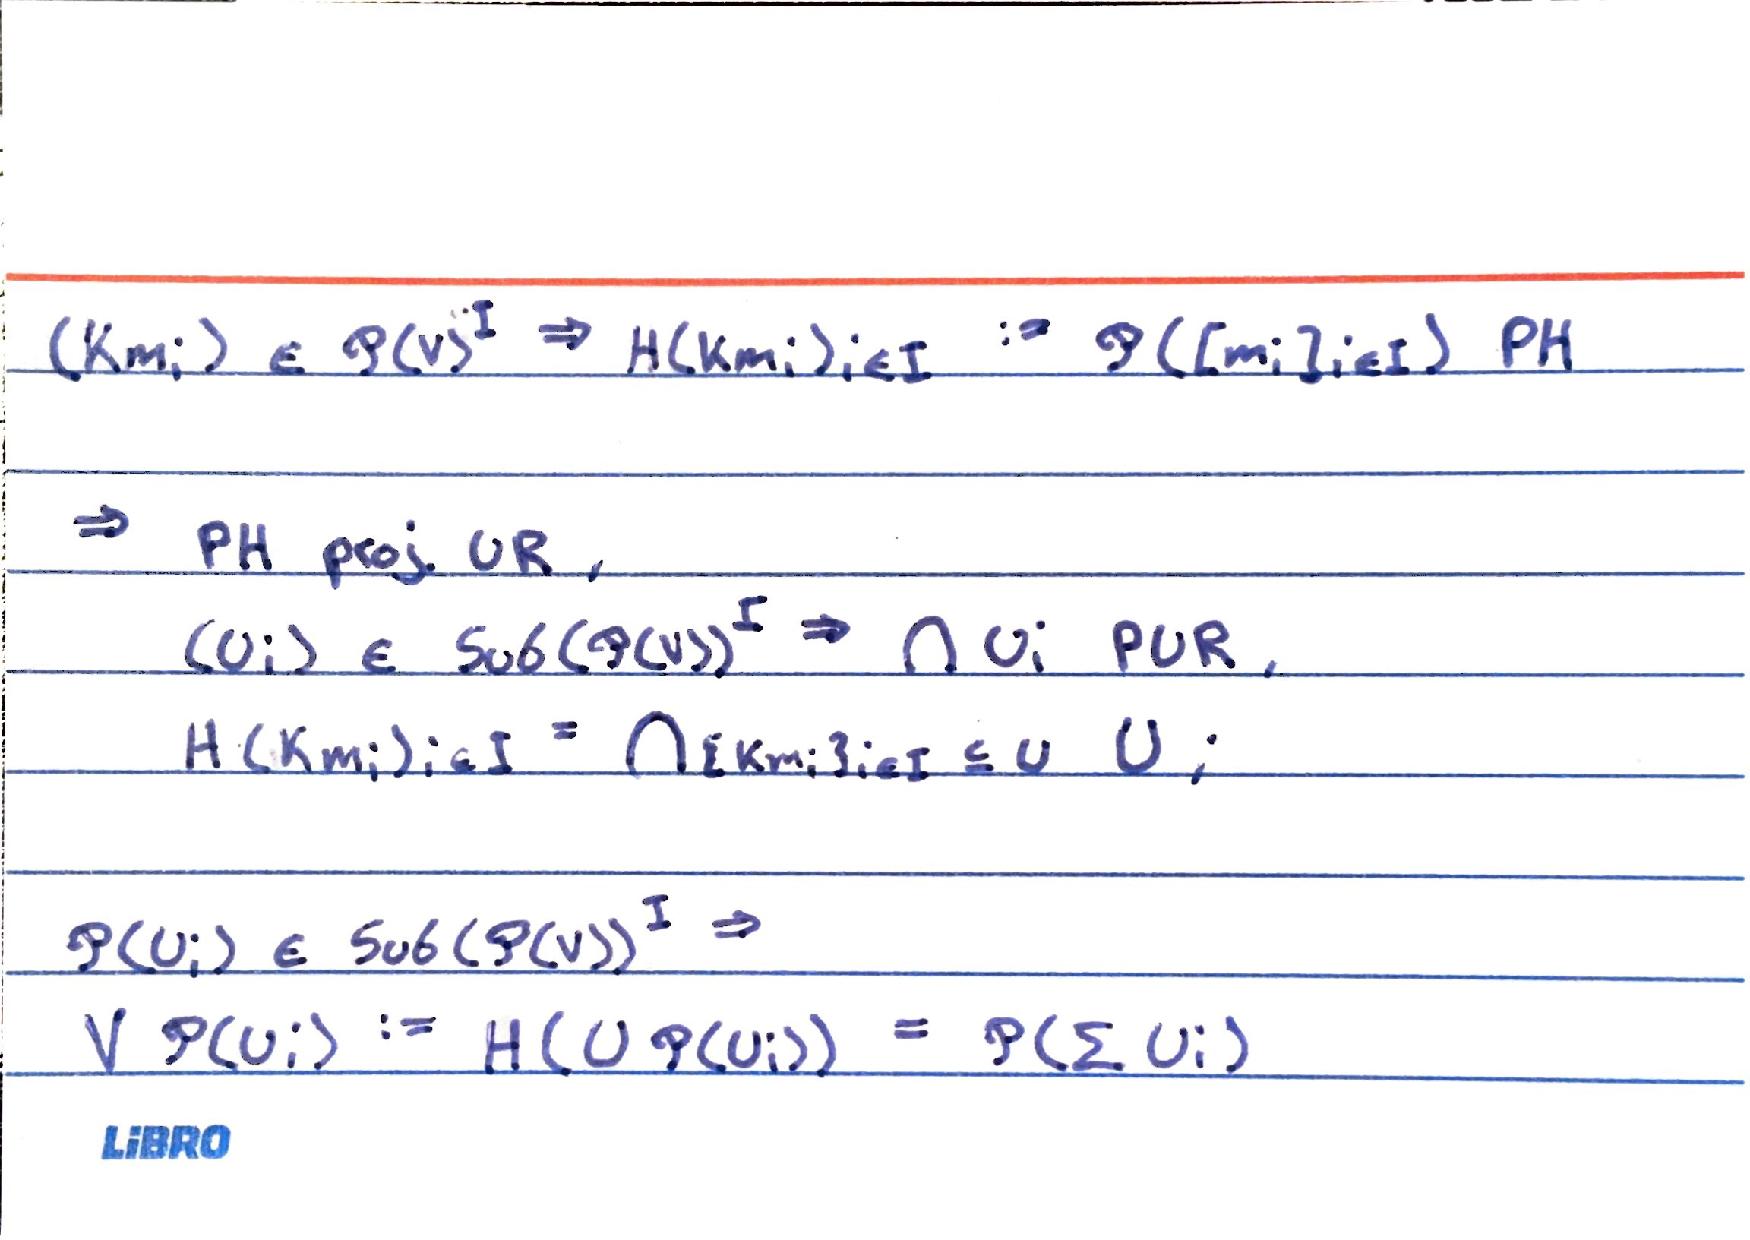 (Km_i) ∈ 𝒫(V)^I ⇒ H(Km_i)_{i∈I} := 𝒫([m_i]_{i∈I}) PH
⇒ PH proj. UR,
(U_i) ∈ Sub(𝒫(V))^I ⇒ ⋂ U_i PUR,
H(Km_i)_{i∈I} = ⋂_{{Km_i}_{i∈I} ⊆ U} U ;
𝒫(U_i) ∈ Sub(𝒫(V))^I ⇒
∨ 𝒫(U_i) := H(∪ 𝒫(U_i)) = 𝒫(Σ U_i)
LiBRO